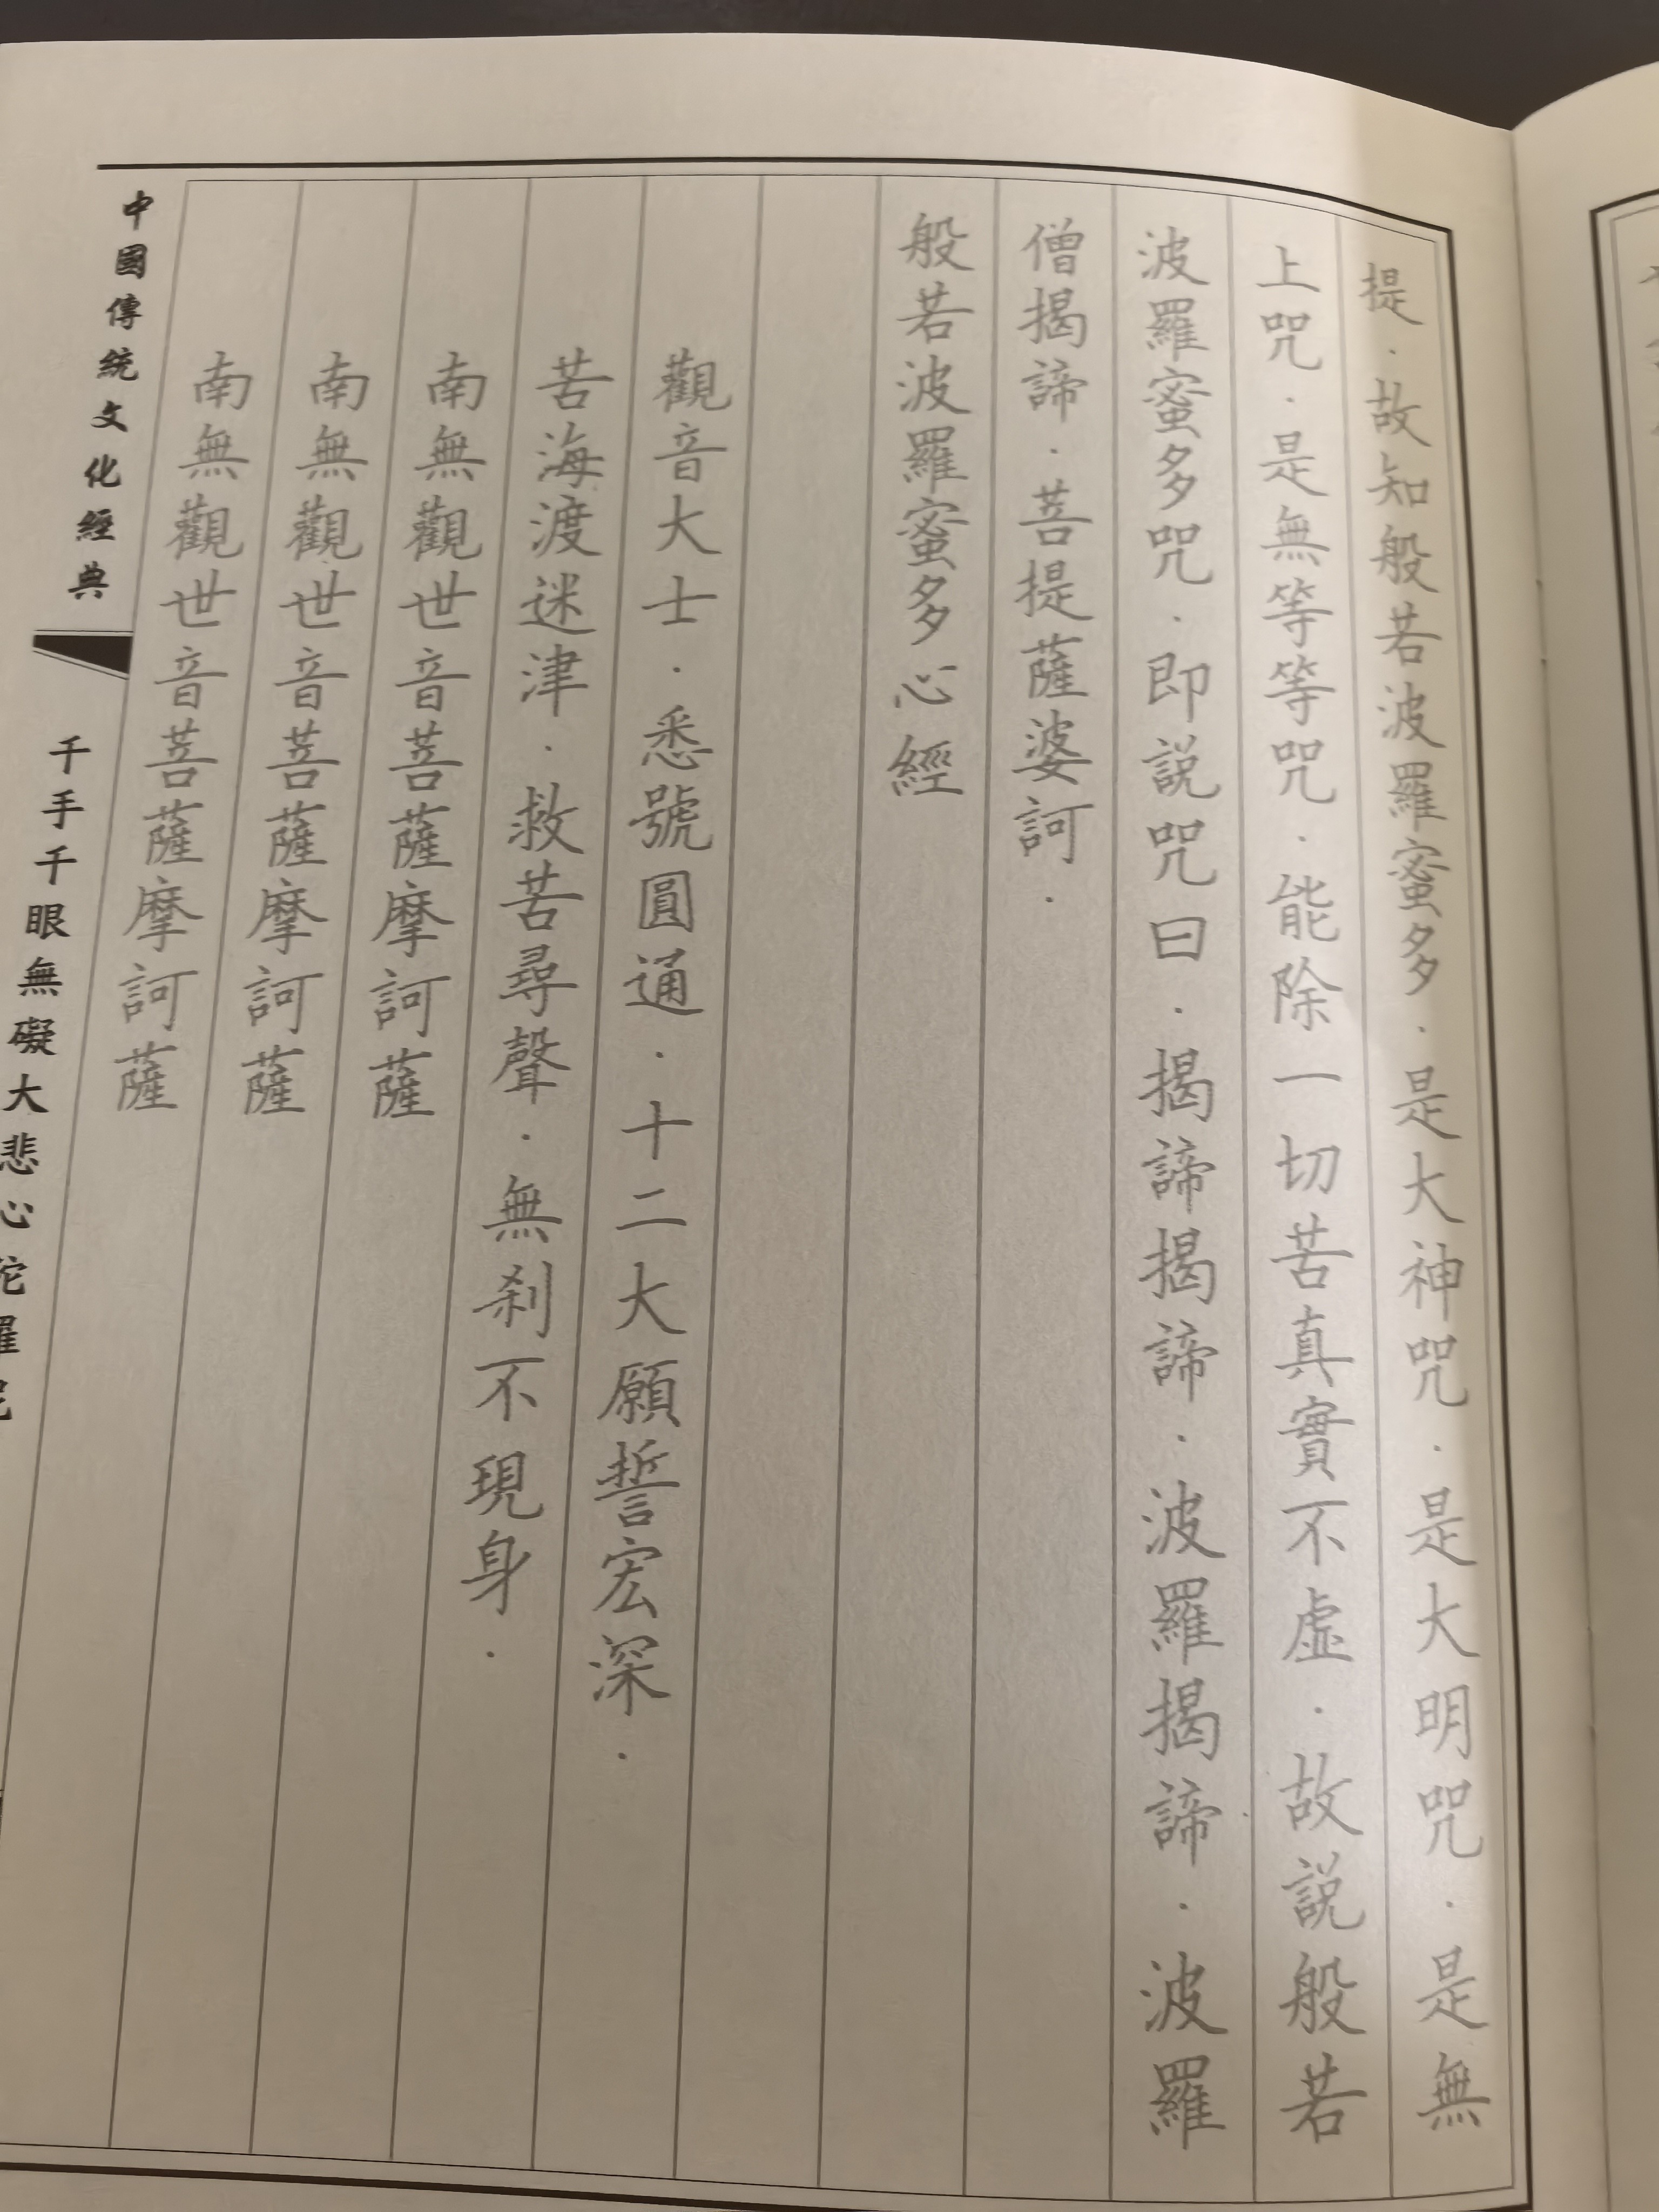 提．故知般若波羅蜜多．是大神咒．是大明咒．是無
上咒．是無等等咒．能除一切苦真實不虛．故説般若
波羅蜜多咒．即説咒曰．揭諦揭諦．波羅揭諦．波羅
僧揭諦．菩提薩婆訶．
般若波羅蜜多心經
觀音大士．悉號圓通．十二大願誓宏深．
苦海渡迷津．救苦尋聲．無刹不現身．
南無觀世音菩薩摩訶薩
南無觀世音菩薩摩訶薩
南無觀世音菩薩摩訶薩
中國傳統文化經典
千手千眼無礙大悲心陀羅尼